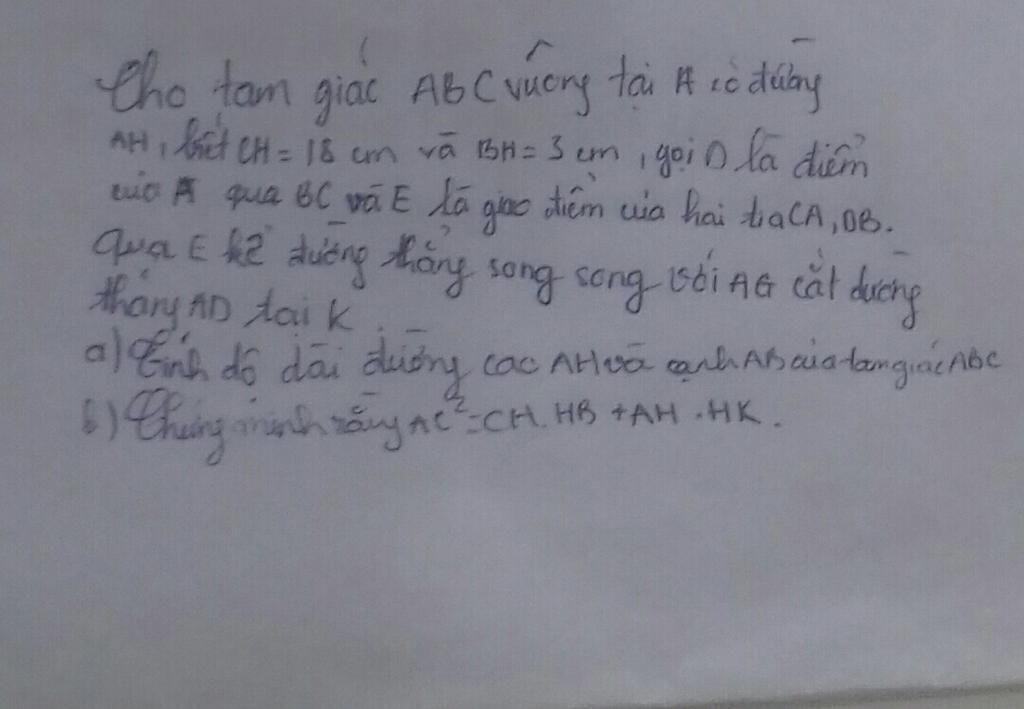 Cho tam giác ABC vuông tại A có đường
AH, biết CH = 18 cm và BH = 3 cm, gọi D là điểm
của A qua BC và E là giao điểm của hai tia CA, DB.
Qua E kẻ đường thẳng song song với AG cắt đường
thẳng AD tại K.
a) Tính độ dài đường cao AH và cạnh AB của tam giác ABC
b) Chứng minh rằng AC² = CH.HB + AH.HK.